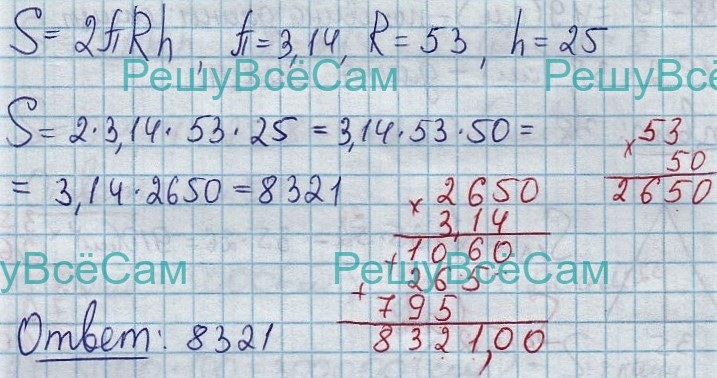 S = 2πRh, π = 3,14, R = 53, h = 25
РешуВсёСам РешуВсё
S = 2·3,14·53·25 = 3,14·53·50 =
= 3,14·2650 = 8321
× 53
50
2650
× 2650
3,14
1060
+ 265
+ 795
8321,00
шуВсёСам РешуВсёСам
Ответ: 8321